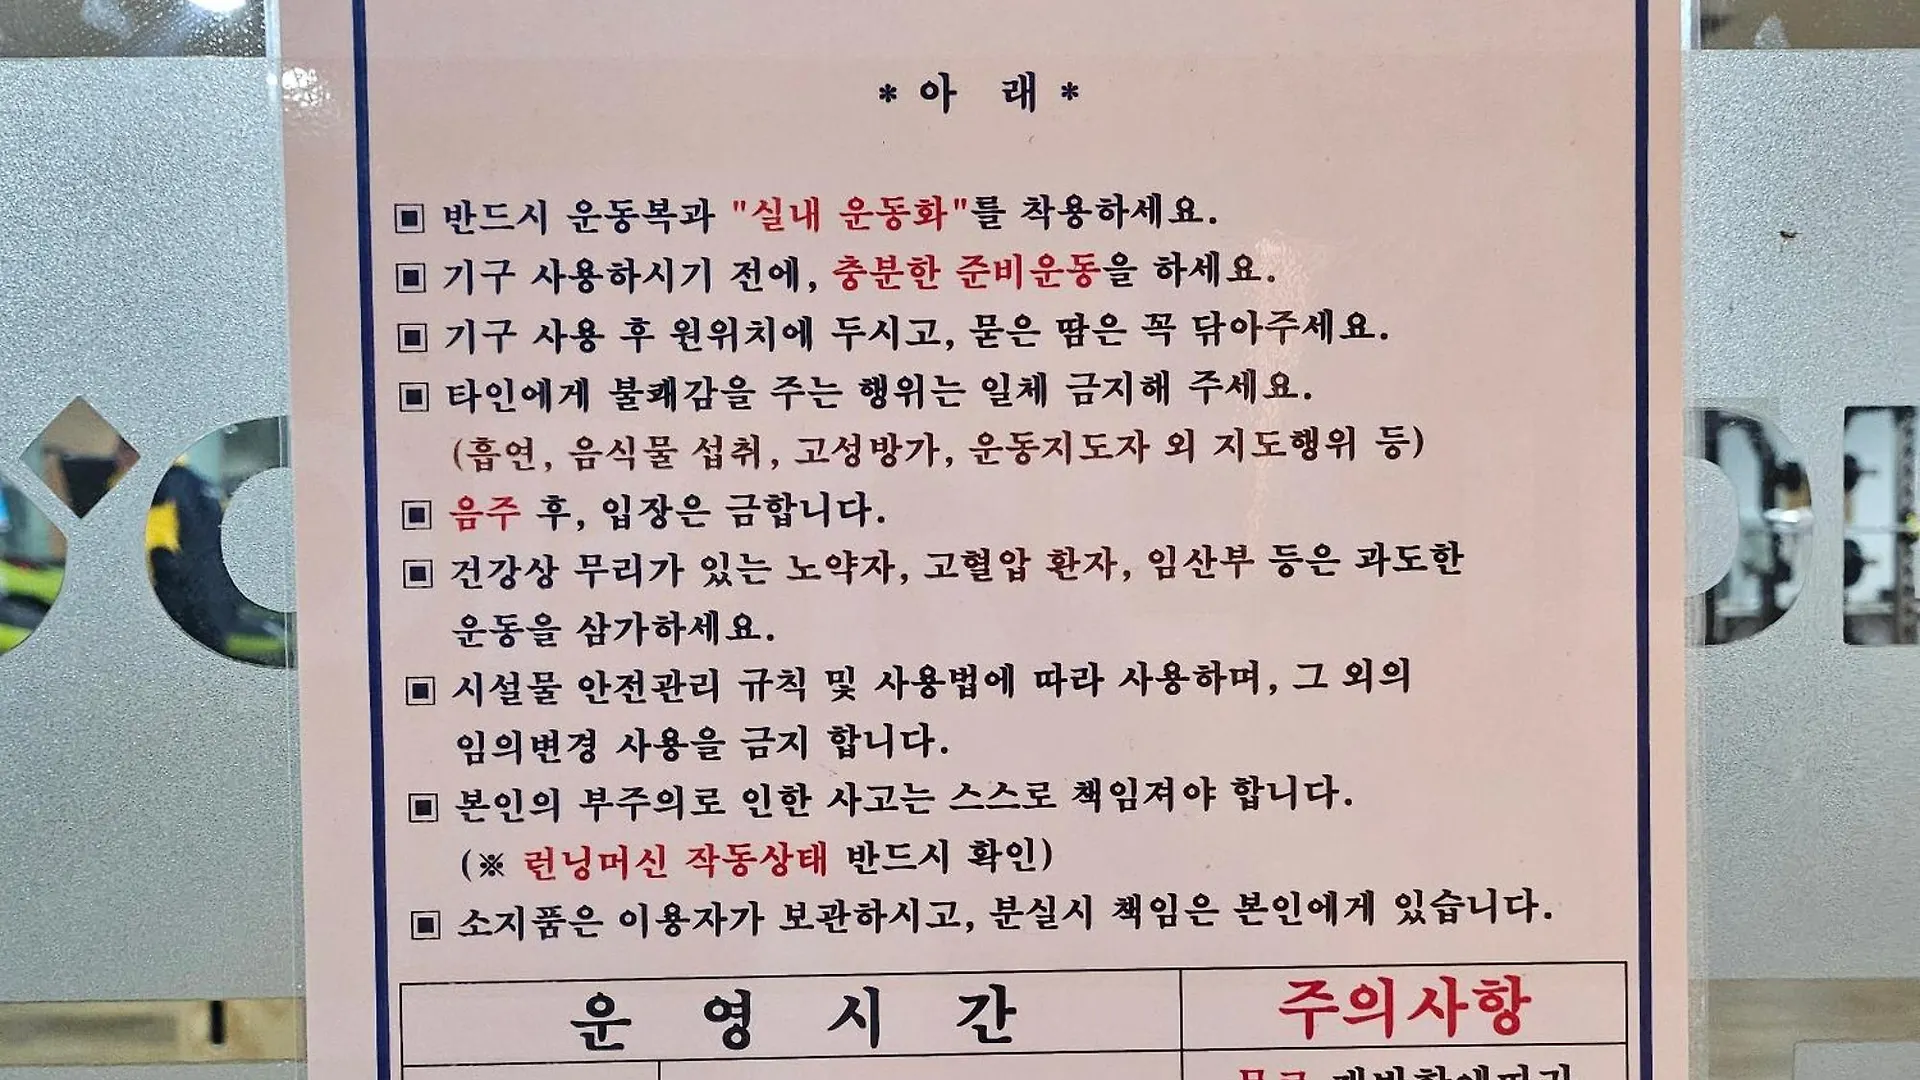 * 아 래 *
▣ 반드시 운동복과 "실내 운동화"를 착용하세요.
▣ 기구 사용하시기 전에, 충분한 준비운동을 하세요.
▣ 기구 사용 후 원위치에 두시고, 묻은 땀은 꼭 닦아주세요.
▣ 타인에게 불쾌감을 주는 행위는 일체 금지해 주세요.
(흡연, 음식물 섭취, 고성방가, 운동지도자 외 지도행위 등)
▣ 음주 후, 입장은 금합니다.
▣ 건강상 무리가 있는 노약자, 고혈압 환자, 임산부 등은 과도한
운동을 삼가하세요.
▣ 시설물 안전관리 규칙 및 사용법에 따라 사용하며, 그 외의
임의변경 사용을 금지 합니다.
▣ 본인의 부주의로 인한 사고는 스스로 책임져야 합니다.
(※ 런닝머신 작동상태 반드시 확인)
▣ 소지품은 이용자가 보관하시고, 분실시 책임은 본인에게 있습니다.
운 영 시 간
주의사항